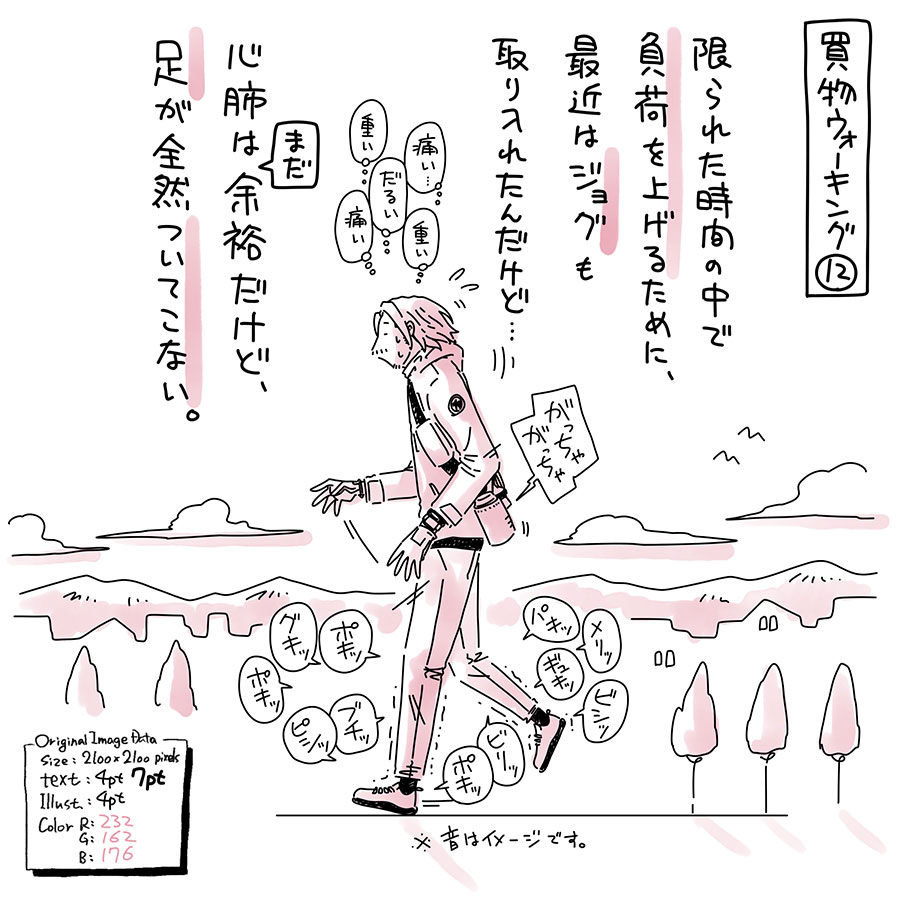 買物ウォーキング⑫
限られた時間の中で
負荷を上げるために、
最近はジョグも
取り入れたんだけど…
心肺は余裕だけど、
まだ
足が全然ついてこない。
痛い…
重い
だるい
痛い
重い
がっちゃ
がっちゃ
パキッ
メリッ
ギュキッ
ビシッ
ビリッ
ポキッ
ポキッ
グキッ
ポキッ
ブチッ
ピシッ
※音はイメージです。
Original Image Data
Size : 2100×2100 pixels
text : 4pt 7pt
Illust. : 4pt
Color R: 232
G: 162
B: 176